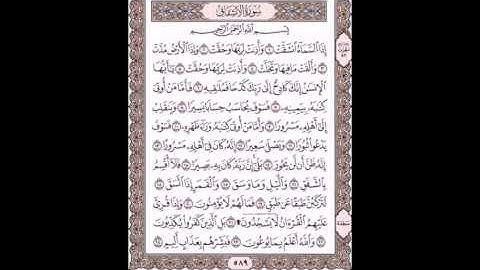 سُورَةُ الانشِقَاقِ
بِسْمِ اللَّهِ الرَّحْمَٰنِ الرَّحِيمِ
إِذَا السَّمَاءُ انشَقَّتْ ١ وَأَذِنَتْ لِرَبِّهَا وَحُقَّتْ ٢ وَإِذَا الْأَرْضُ مُدَّتْ
٣ وَأَلْقَتْ مَا فِيهَا وَتَخَلَّتْ ٤ وَأَذِنَتْ لِرَبِّهَا وَحُقَّتْ ٥ يَٰأَيُّهَا
الْإِنسَٰنُ إِنَّكَ كَادِحٌ إِلَىٰ رَبِّكَ كَدْحًا فَمُلَٰقِيهِ ٦ فَأَمَّا مَنْ أُوتِيَ
كِتَٰبَهُ بِيَمِينِهِ ٧ فَسَوْفَ يُحَاسَبُ حِسَابًا يَسِيرًا ٨ وَيَنقَلِبُ
إِلَىٰ أَهْلِهِ مَسْرُورًا ٩ وَأَمَّا مَنْ أُوتِيَ كِتَٰبَهُ وَرَاءَ ظَهْرِهِ ١٠ فَسَوْفَ
يَدْعُوا ثُبُورًا ١١ وَيَصْلَىٰ سَعِيرًا ١٢ إِنَّهُ كَانَ فِي أَهْلِهِ مَسْرُورًا ١٣
إِنَّهُ ظَنَّ أَن لَّن يَحُورَ ١٤ بَلَىٰ إِنَّ رَبَّهُ كَانَ بِهِ بَصِيرًا ١٥ فَلَا أُقْسِمُ
بِالشَّفَقِ ١٦ وَاللَّيْلِ وَمَا وَسَقَ ١٧ وَالْقَمَرِ إِذَا اتَّسَقَ ١٨
لَتَرْكَبُنَّ طَبَقًا عَن طَبَقٍ ١٩ فَمَا لَهُمْ لَا يُؤْمِنُونَ ٢٠ وَإِذَا قُرِئَ
عَلَيْهِمُ الْقُرْءَانُ لَا يَسْجُدُونَ ٢١ بَلِ الَّذِينَ كَفَرُوا يُكَذِّبُونَ
٢٢ وَاللَّهُ أَعْلَمُ بِمَا يُوعُونَ ٢٣ فَبَشِّرْهُم بِعَذَابٍ أَلِيمٍ ٢٤
سجدة
٥٨٩